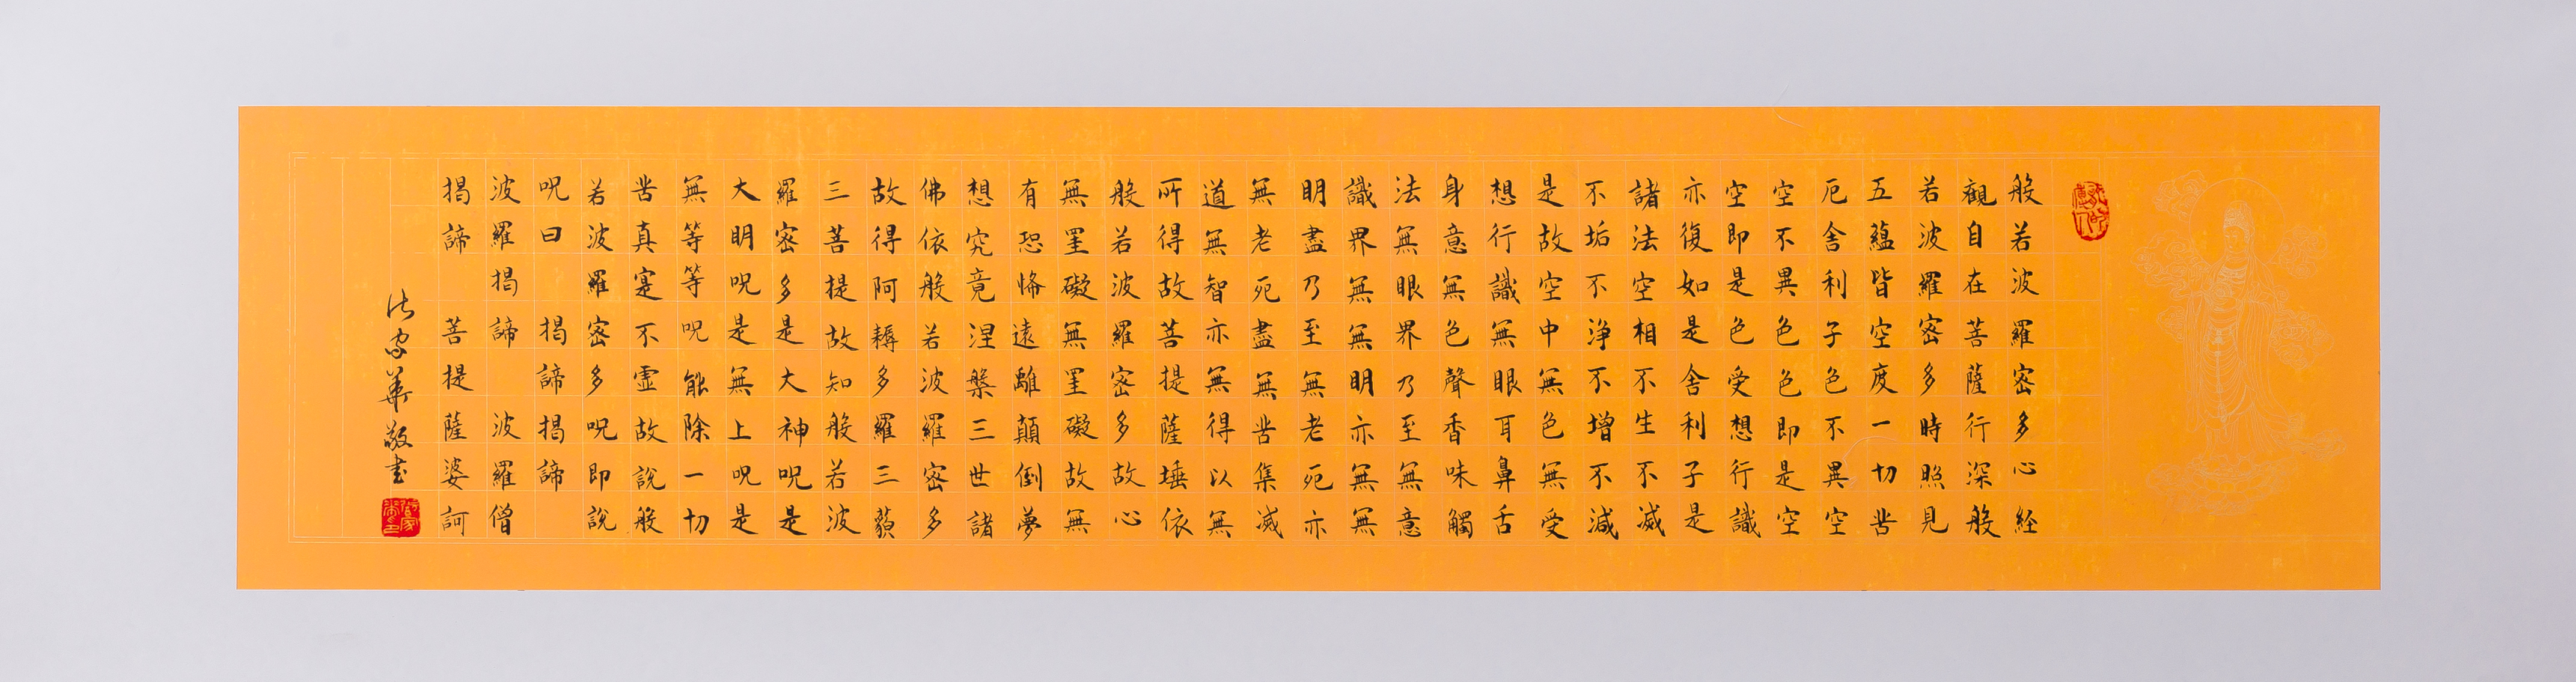 般若波羅密多心経
觀自在菩薩行深般
若波羅密多時照見
五蘊皆空度一切苦
厄舍利子色不異空
空不異色色即是空
空即是色受想行識
亦復如是舍利子是
諸法空相不生不滅
不垢不淨不增不減
是故空中無色無受
想行識無眼耳鼻舌
身意無色聲香味觸
法無眼界乃至無意
識界無無明亦無無
明盡乃至無老死亦
無老死盡無苦集滅
道無智亦無得以無
所得故菩提薩埵依
般若波羅密多故心
無罣礙無罣礙故無
有恐怖遠離顛倒夢
想究竟涅槃三世諸
佛依般若波羅密多
故得阿耨多羅三藐
三菩提故知般若波
羅密多是大神呪是
大明呪是無上呪是
無等等呪能除一切
苦真寔不虛故說般
若波羅密多呪即說
呪曰 揭諦揭諦
波羅揭諦 波羅僧
揭諦 菩提薩婆訶
家華敬書